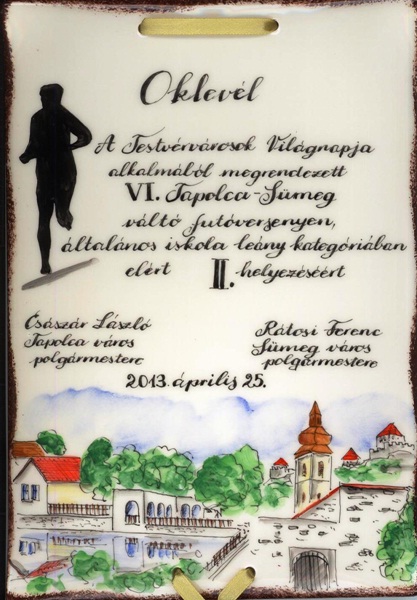 Oklevél
A Testvérvárosok Világnapja
alkalmából megrendezett
VI. Tapolca-Sümeg
váltó futóversenyen,
általános iskola leány kategóriában
elért II. helyezéséért
Császár László
Tapolca város
polgármestere
Rátosi Ferenc
Sümeg város
polgármestere
2013. április 25.